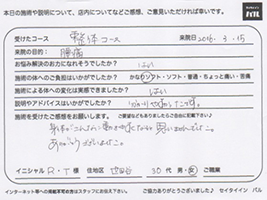 本日の施術や説明について、店内についてなどご感想、ご意見いただければ幸いです。
パル
受けたコース 整体コース 来院日 2016.3.15
来院の目的: 腰痛
お悩み解決のお力になれそうでしたか? はい
施術の体へのご負担はいかがでしたか? かなりソフト・ソフト・普通・ちょっと痛い・苦痛
施術による体への変化は実感できましたか? はい
説明やアドバイスはいかがでしたか? わかりやすかったです。
施術を受けたご感想をお願いします。
ありがとうございました。
イニシャル R・T 様 住地区 世田谷 30代 男・女 ご職業
インターネット等への掲載不可の方はスタッフにお伝え下さい。 ご協力ありがとうございました♪ セイタイイン パル